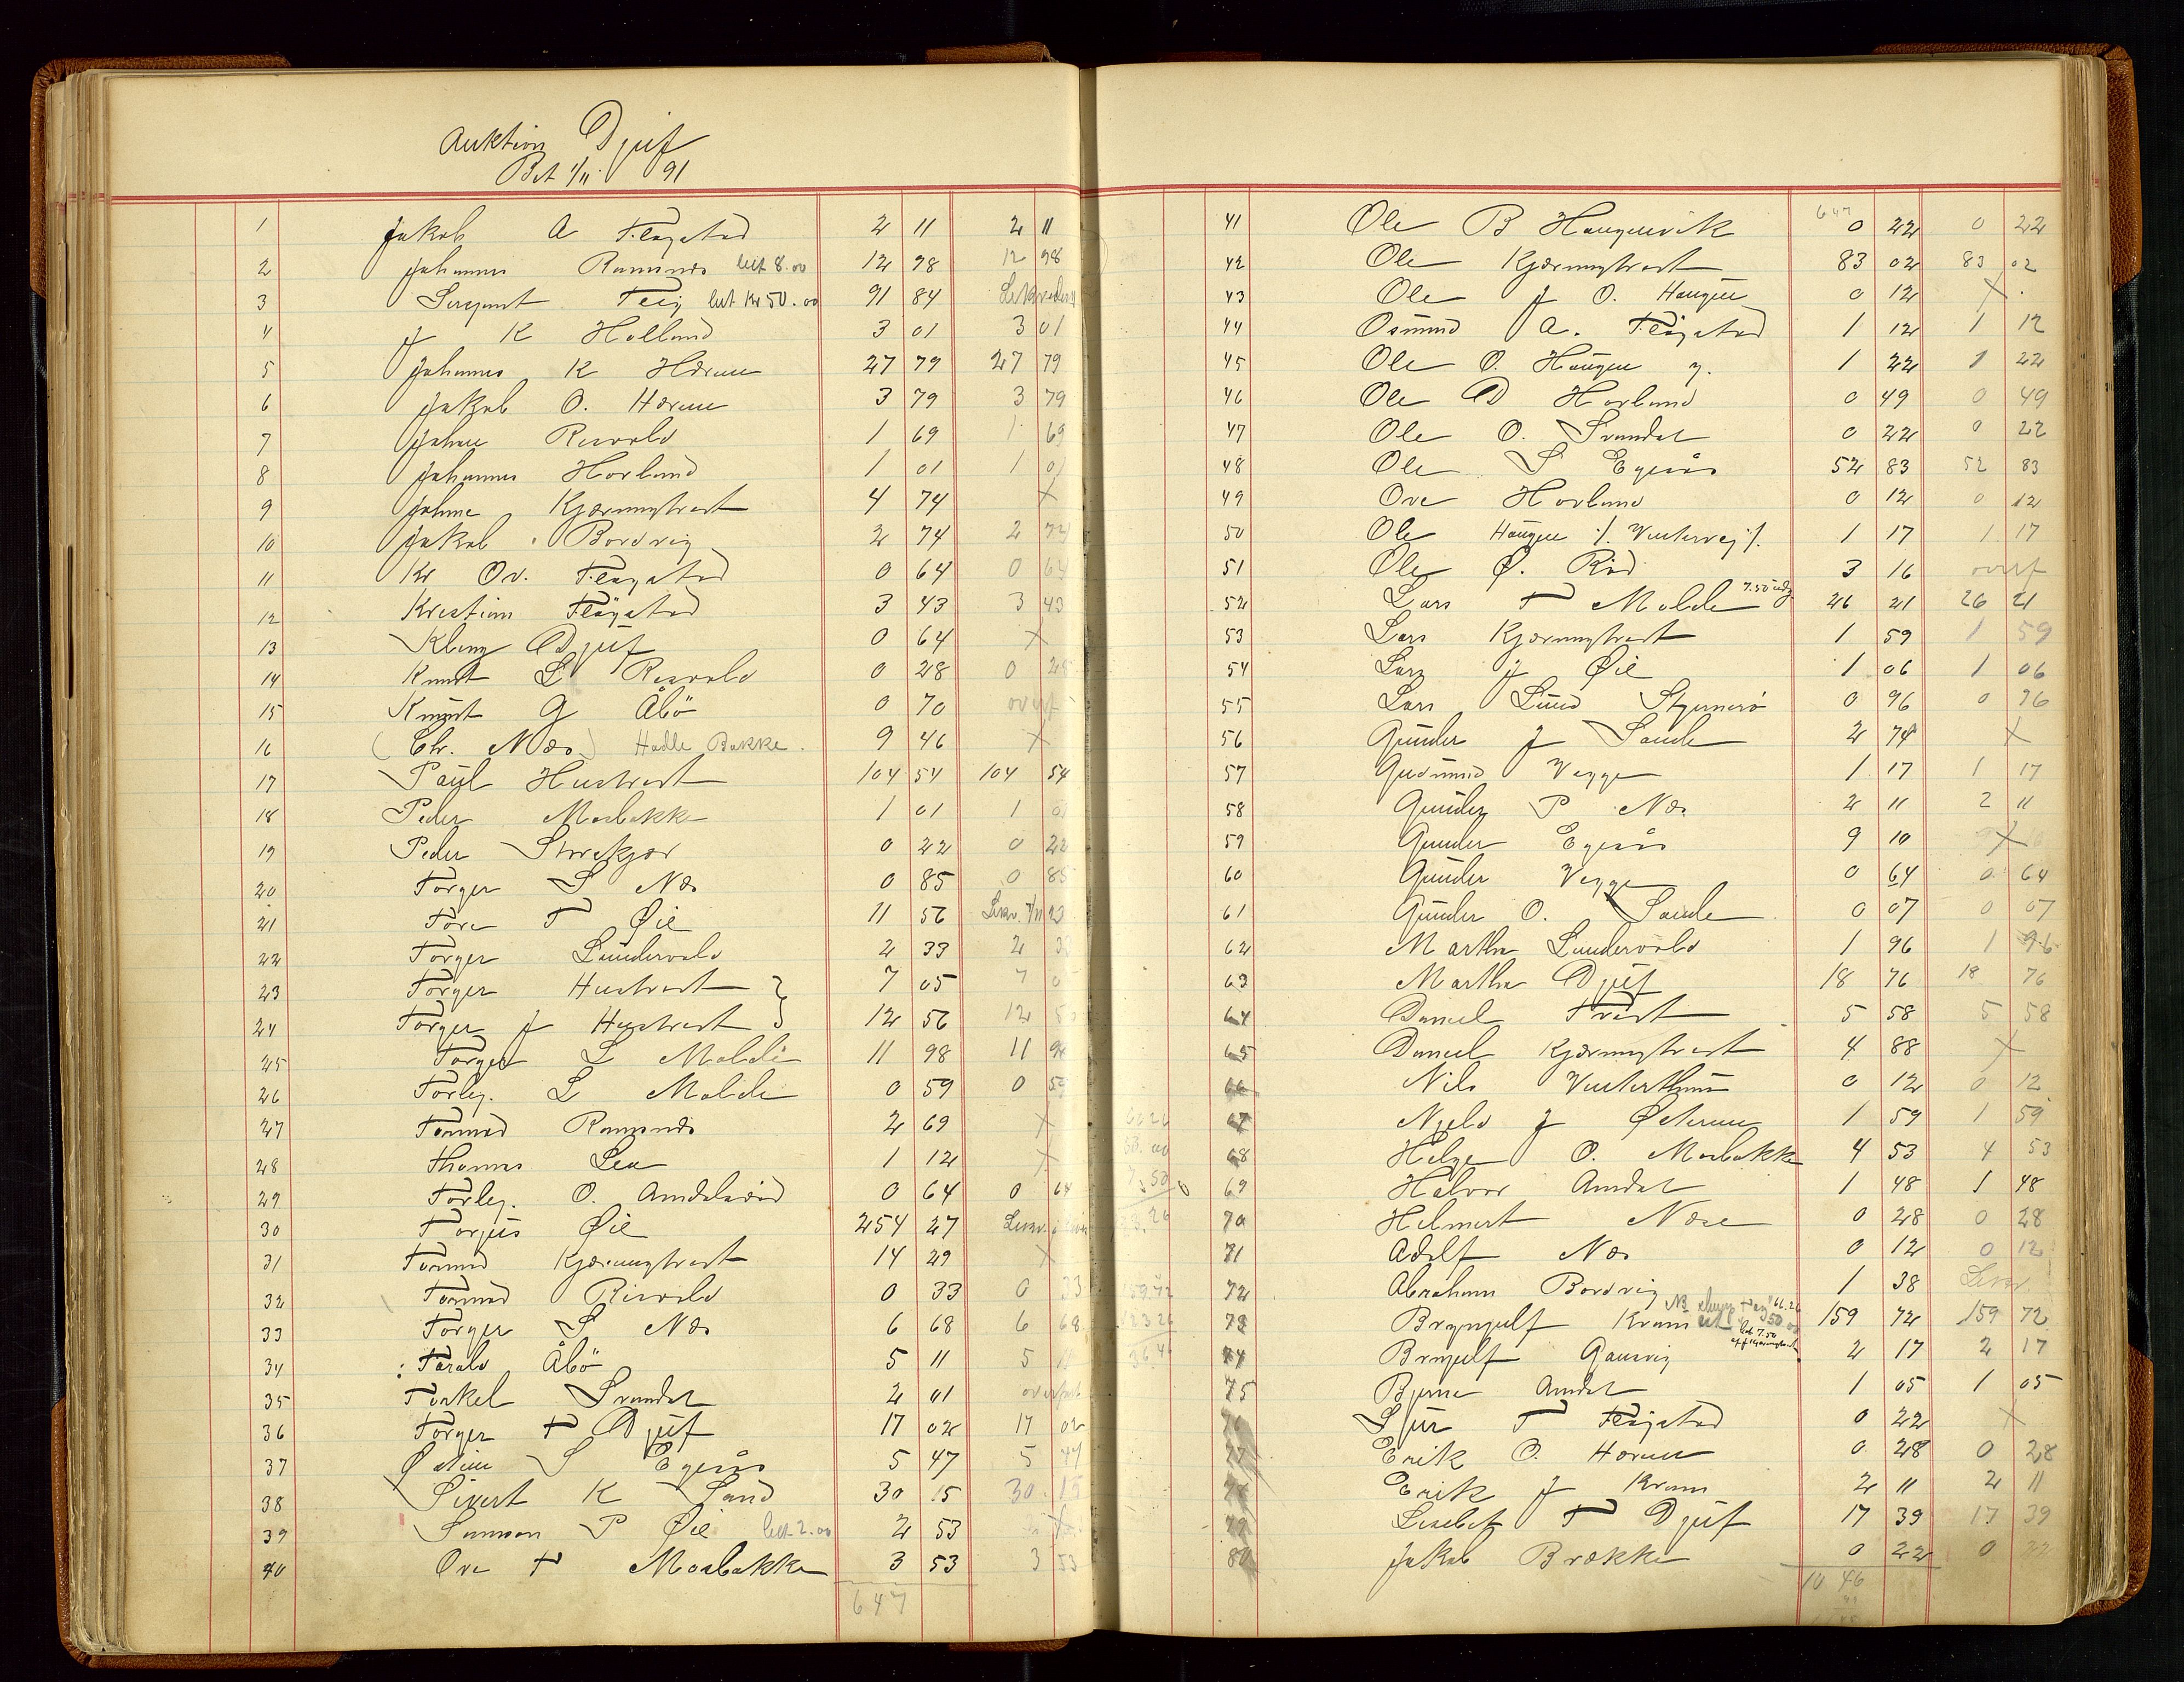 Auktion Djuf
Bet 1/11 91
1 Jakob A Fløgstad 2 11 2 11
2 Johannes Ramsnes bet 8.00 12 98 12 98
3 Sergent Teig bet Kr 50.00 91 84
4 J K Holland 3 01 3 01
5 Johannes K Hærum 27 79 27 79
6 Jakob O. Hærum 3 79 3 79
7 Johan Risvold 1 69 1 69
8 Johannes Horland 1 01 1 01
9 Johan Kjærringtveit 4 74 X
10 Jakob Bordvig 2 74 2 74
11 Kr Ov. Fløgstad 0 64 0 64
12 Kristian Fløgstad 3 43 3 43
13 Kleng Djuf 0 64 X
14 Knut L Risvold 0 28 0 28
15 Knut G Åbö 0 70 overf
16 (Chr. Næs) Hadle Bakke. 9 46 X
17 Paul Hustveit 104 54 104 54
18 Peder Mosbakke 1 01 1 01
19 Peder Storekjær 0 22 0 22
20 Torger S Næs 0 85 0 85
21 Tore T Øie 11 56
22 Torger Lundervold 2 33 2 33
23 Torger Hustveit } 7 05 7 05
24 Torger J Hustveit } 12 56 12 56
25 Torger L Molde 11 98 11 98
26 Torlej. L Molde 0 59 0 59
27 Tormod Ramsnes 2 69 X
28 Thomas Lea 1 12 X
29 Torlej. O. Amdalsrød 0 64 0 64
30 Torjus Øie 254 27
31 Tormod Kjærringtveit 14 29 X
32 Tormod Risvold 0 33 0 33
33 Torger S Næs 6 68 6 68
34 Tarald Åbö 5 11 5 11
35 Torkel Svandal 2 01 overført
36 Torger T Djuf 17 02 17 02
37 Østen S Egeraas 5 47 5 47
38 Sivert K Sand 30 15 30 15
39 Samson P Øie bet 2.00 2 53 X
40 Ove T Mosbakke 3 53 3 53
647
647
41 Ole B Haugenvik 0 22 0 22
42 Ole Kjærringtveit 83 02 83 02
43 Ole J O. Haugen 0 12 X
44 Osmund A. Fløgstad 1 12 1 12
45 Ole O. Haugen y. 1 22 1 22
46 Ole D Horland 0 49 0 49
47 Ole O. Svandal 0 22 0 22
48 Ole S Egerås 52 83 52 83
49 Ove Horland 0 12 0 12
50 Ole Haugen /. Vintervej /. 1 17 1 17
51 Ole Ø. Rød 3 16 overf
52 Lars T Molde 7.50 26 21 26 21
53 Lars Kjærringtveit 1 59 1 59
54 Lars J Øie 1 06 1 06
55 Lars Lund Stjernerö 0 96 0 96
56 Gunder J Sande 2 74 X
57 Gudmund Vegge 1 17 1 17
58 Gunder P Næs 2 11 2 11
59 Gunder Egerås 9 10 X
60 Gunder Vegge 0 64 0 64
61 Gunder O. Sande 0 07 0 07
62 Martha Lundervold 1 96 1 96
63 Martha Djuf 18 76 18 76
64 Daniel Tveit 5 58 5 58
65 Daniel Kjærringtveit 4 88 X
66 Nils Vinterthun 0 12 0 12
67 Njeld J Østerun 1 59 1 59
68 Helge O. Mosbakke 4 53 4 53
69 Halvor Amdal 1 48 1 48
70 Helmert Næse 0 28 0 28
71 Adolf Næs 0 12 0 12
72 Abraham Bordvig 1 38
73 Brynjulf Kram 159 72 159 72
74 Brynjulf Gausvig 2 17 2 17
75 Bjerne Amdal 1 05 1 05
76 Sjur T Fløgstad 0 22 X
77 Erik O. Hærum 0 28 0 28
78 Erik J Kram 2 11 2 11
79 Lisebet T Djuf 17 39 17 39
80 Jakob Brække 0 22 0 22
10 46